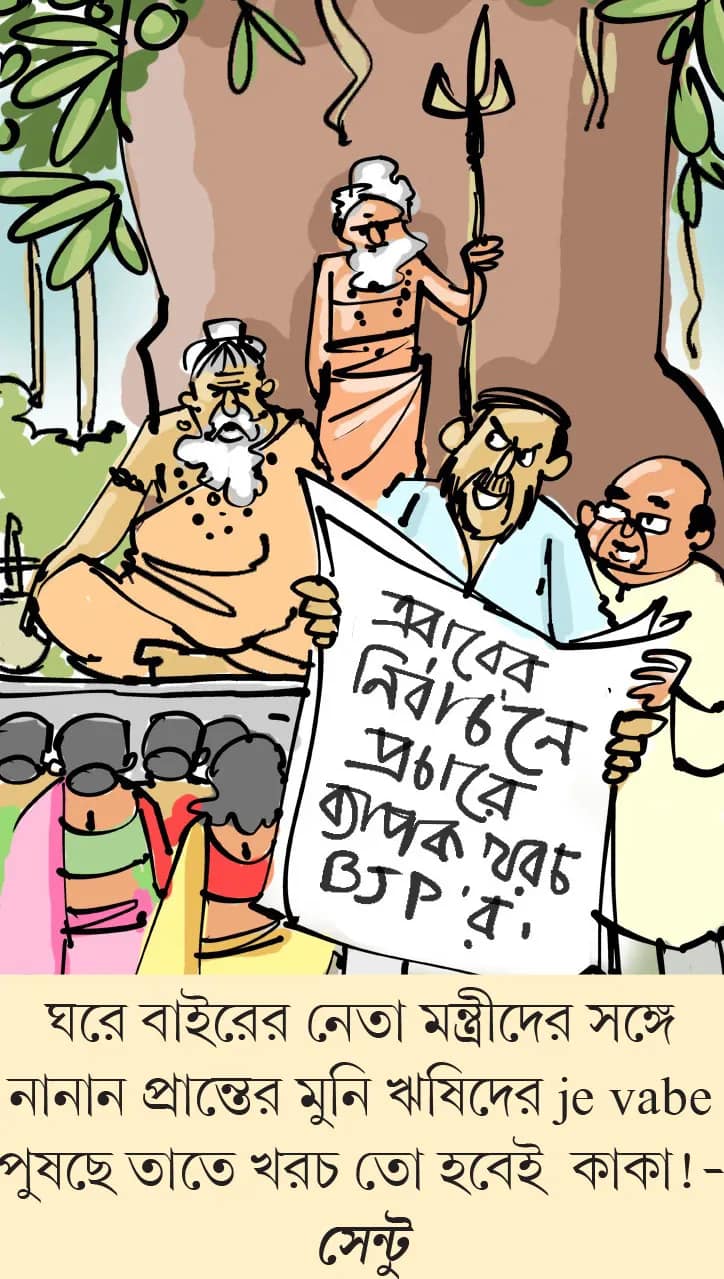 এবারের
নির্বাচনে
প্রচারে
ব্যাপক খরচ
BJP'র'
ঘরে বাইরের নেতা মন্ত্রীদের সঙ্গে
নানান প্রান্তের মুনি ঋষিদের je vabe
পুষছে তাতে খরচ তো হবেই কাকা! -
সেন্টু